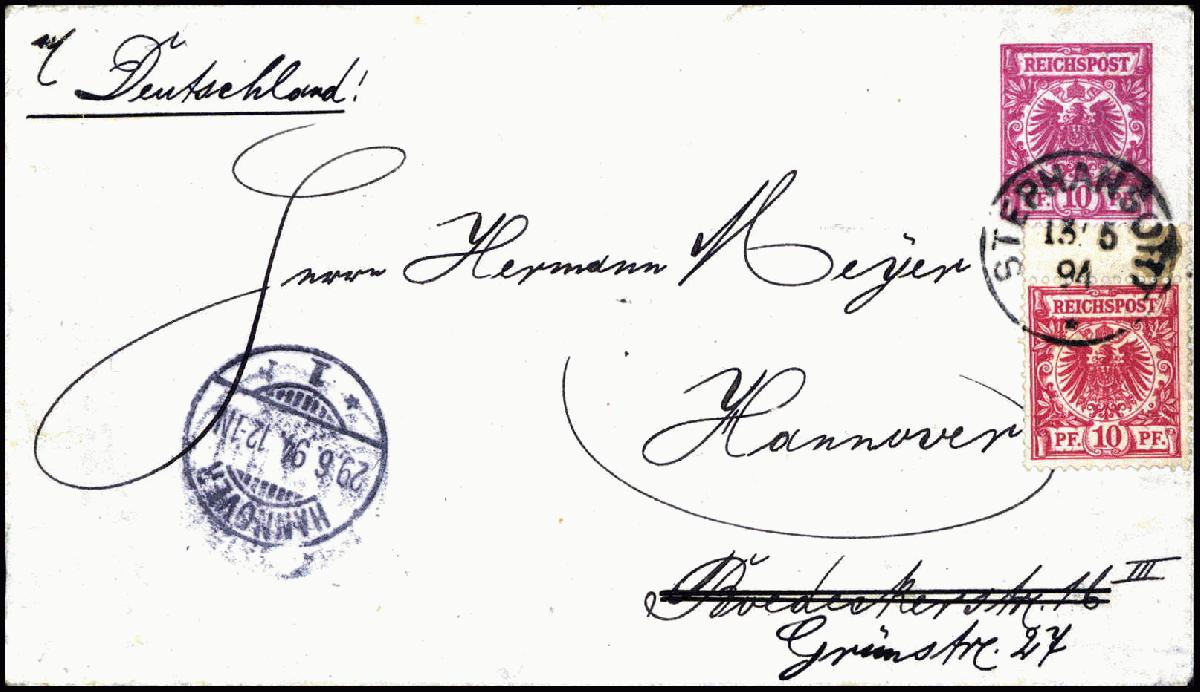 Deutschland!
REICHSPOST
PF. 10 PF.
STEPHANSORT
13/5
94
*
REICHSPOST
PF. 10 PF.
Herrn Hermann Meyer
Hannover
HANNOVER
29.6.94. 12-1N
* 1 *
Boedeckerstr. 16 III
Grünstr. 27